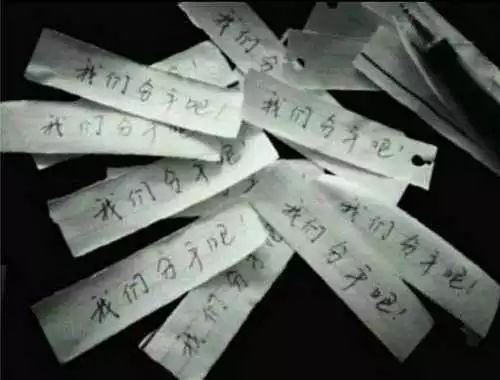 我们分手
我们分手吧!
我们分手吧!
我们分手吧!
我们分手吧
我们分手吧!
我们分手吧!
我们分手吧!
我们分手